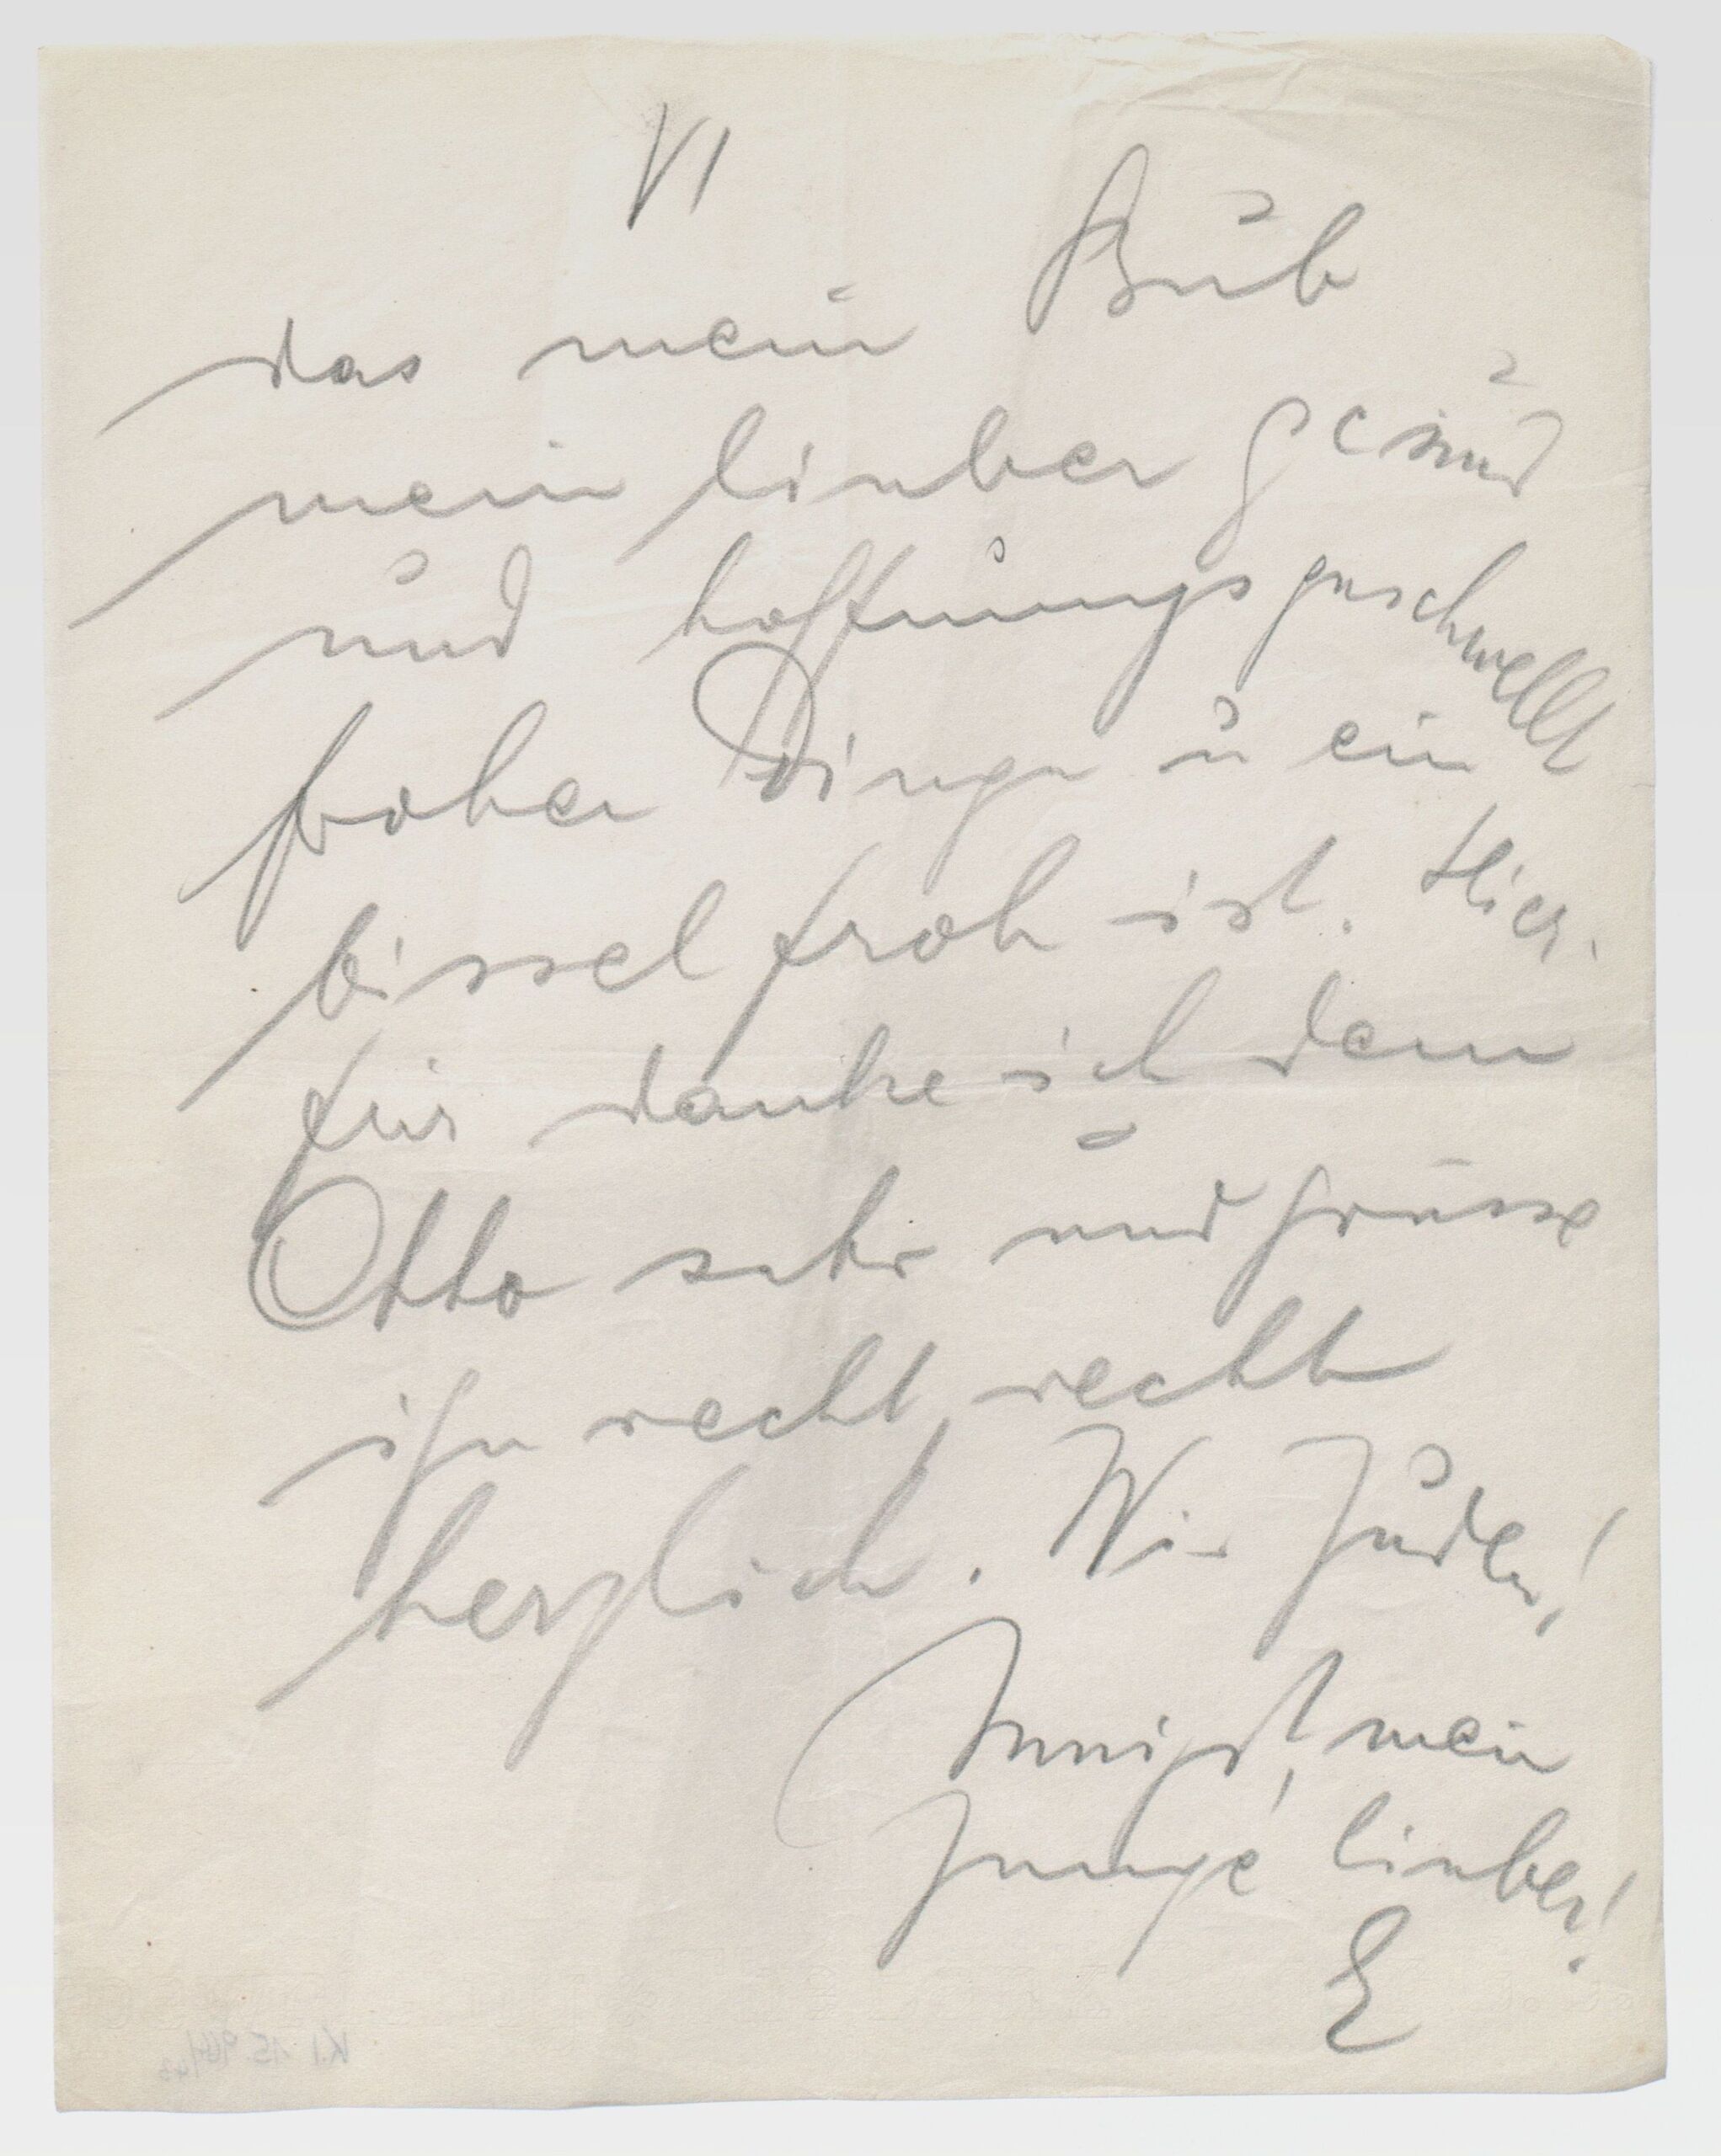 VI
das mein Bub
mein lieber gesund
und hoffnungsgeschwellt
froher Dinge u ein
bissel froh ist. Hier.
für danke ich dem
Otto sehr und grüsse
ihn recht, recht
herzlich. Wir Juden!
Innigst, mein
Junge lieber!
E